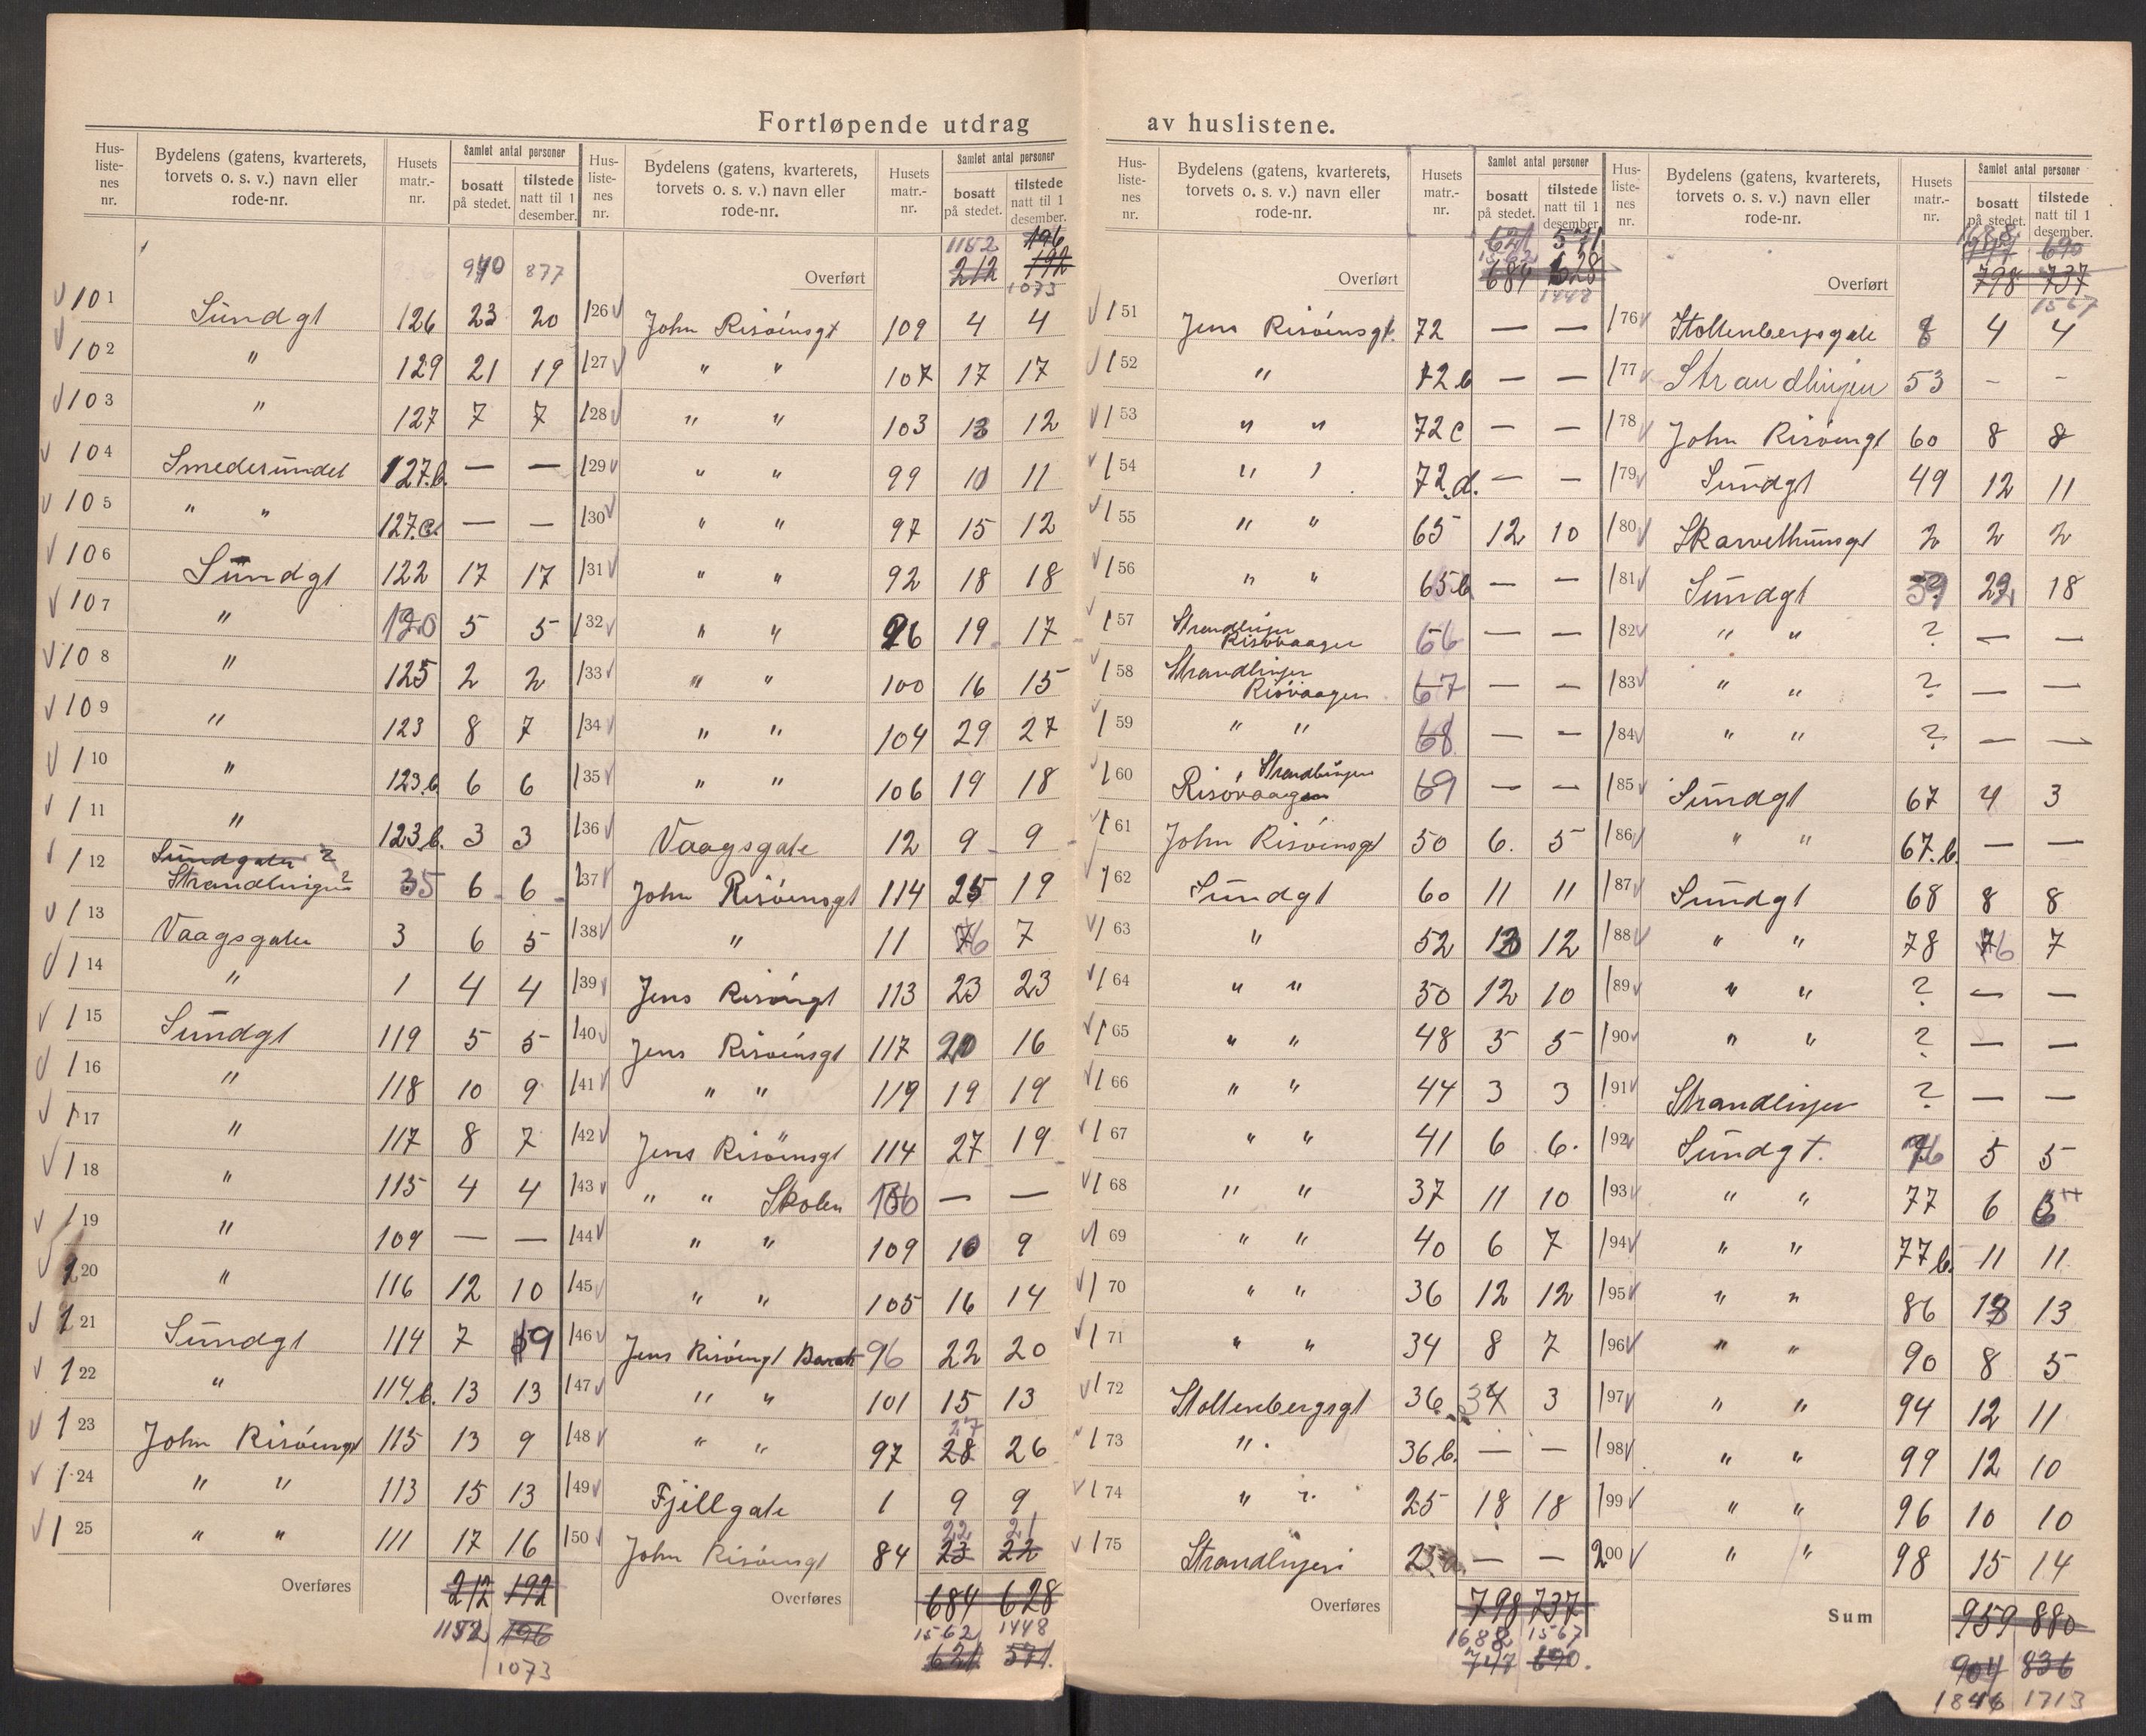 Fortløpende utdrag av huslistene.
Hus-liste-nes nr. | Bydelens (gatens, kvarterets, torvets o. s. v.) navn eller rode-nr. | Husets matr.-nr. | Samlet antal personer bosatt på stedet. | tilstede natt til 1 desember.
940 877
101 Sundgt 126 23 20
102 " 129 21 19
103 " 127 7 7
104 Smedesundet 127.b. — —
105 " " 127.c. — —
106 Sundgt 122 17 17
107 " 120 5 5
108 " 125 2 2
109 " 123 8 7
110 " 123.b. 6 6
111 " 123.b. 3 3
112 Sundgaten ? Strandlinjen ? 35 6 6
113 Vaagsgaten 3 6 5
114 " 1 4 4
115 Sundgt 119 5 5
116 " 118 10 9
117 " 117 8 7
118 " 115 4 4
119 " 109 — —
120 " 116 12 10
121 Sundgt 114 7 9
122 " 114.b. 13 13
123 John Risøensgt 115 13 9
124 " " 113 15 13
125 " " 111 17 16
Overføres 212 192
1152 196
1073
Hus-liste-nes nr. | Bydelens (gatens, kvarterets, torvets o. s. v.) navn eller rode-nr. | Husets matr.-nr. | Samlet antal personer bosatt på stedet. | tilstede natt til 1 desember.
1152 196
Overført 212 192
1073
126 John Risøensgt 109 4 4
127 " " 107 17 17
128 " " 103 13 12
129 " " 99 10 11
130 " " 97 15 12
131 " " 92 18 18
132 " " 96 19 17
133 " " 100 16 15
134 " " 104 29 27
135 " " 106 19 18
136 Vaagsgate 12 9 9
137 John Risøensgt 114 25 19
138 " 11 6 7
139 Jens Risøengt 113 23 23
140 Jens Risøensgt 117 20 16
141 " " 119 19 19
142 Jens Risøensgt 114 27 19
143 " " Skolen 106 — —
144 " " 109 10 9
145 " " 105 16 14
146 Jens Risøengt Barak 96 22 20
147 " " 101 15 13
148 " " 97 28 27 26
149 Fjellgate 1 9 9
150 John Risøensgt 84 23 22 22 21
Overføres 684 628
1562 1448
621 571.
Hus-liste-nes nr. | Bydelens (gatens, kvarterets, torvets o. s. v.) navn eller rode-nr. | Husets matr.-nr. | Samlet antal personer bosatt på stedet. | tilstede natt til 1 desember.
621 571
1562
Overført 684 628
1448
151 Jens Risøensgt. 72 — —
152 " 72b — —
153 " " 72c — —
154 " " 72.d. — —
155 " " 65 12 10
156 " " 65b — —
157 Strandlinjen Risøvaagen 66 — —
158 Strandlinjen Risøvaagen 67 — —
159 " " 68 — —
160 Strandlinjen Risøvaagen 69 — —
161 John Risøensgt 50 6. 5
162 Sundgt 60 11 11
163 " 52 13 12
164 " " 50 12 10
165 " " 48 5 5
166 " " 44 3 3
167 " " 41 6 6.
168 " " 37 11 10
169 " " 40 6 7
170 " " 36 12 12
171 " " 34 8 7
172 Stoltenbergsgt 36 3 3
173 " 36b. — —
174 " " 25 18 18
175 Strandlinjen 25a. — —
Overføres 798 737
1688 1567
747 690.
Hus-liste-nes nr. | Bydelens (gatens, kvarterets, torvets o. s. v.) navn eller rode-nr. | Husets matr.-nr. | Samlet antal personer bosatt på stedet. | tilstede natt til 1 desember.
1688
747 690
Overført 798 737
1567
176 Stoltenbergsgate 8 4 4
177 Strandlinjen 53 - -
178 John Risøengt 60 8 8
179 Sundgt 49 12 11
180 Skarvethunsgt 2 2 2
181 Sundgt 59 22 18
182 " " ? — —
183 " " ? — —
184 " " ? — —
185 Sundgt 67 4 3
186 " " 67.b. — —
187 Sundgt 68 8 8
188 " " 78 6 7
189 " " ? — —
190 " " ? — —
191 Strandlinjen ? — —
192 Sundgt. 76 5 5
193 " " 77 6 6
194 " " 77b. 11 11
195 " " 86 13 13
196 " " 90 8 5
197 " " 94 12 11
198 " " 99 12 10
199 " " 96 10 10
200 " " 98 15 14
Sum 959 880
904 836
1846 1713